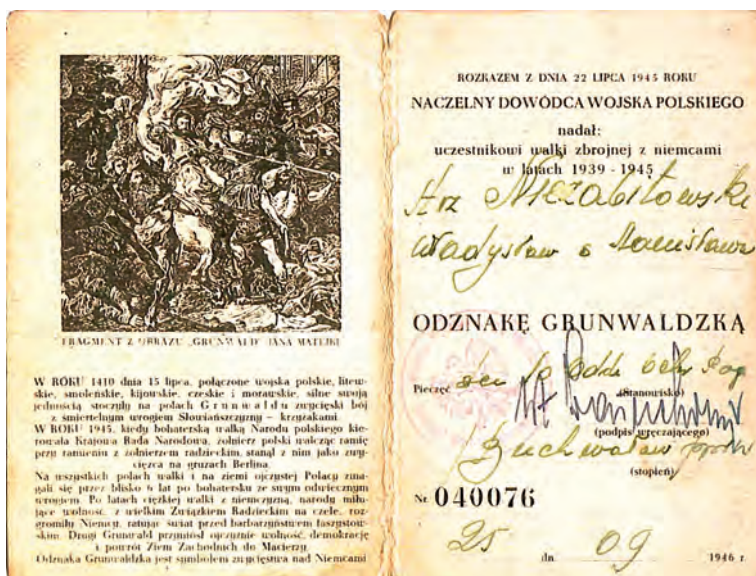 FRAGMENT Z OBRAZU „GRUNWALD" JANA MATEJKI
W ROKU 1410 dnia 15 lipca, połączone wojska polskie, litew-
skie, smoleńskie, kijowskie, czeskie i morawskie, silne swoją
jednością stoczyły na polach Grunwaldu zwycięski bój
z śmiertelnym wrogiem Słowiańszczyzny – krzyżakami.
W ROKU 1945, kiedy bohaterską walką Narodu polskiego kie-
rowała Krajowa Rada Narodowa, żołnierz polski walcząc ramię
przy ramieniu z żołnierzem radzieckim, stanął z nim jako zwy-
cięzca na gruzach Berlina.
Na wszystkich polach walki i na ziemi ojczystej Polacy zma-
gali się przez blisko 6 lat po bohatersku ze swym odwiecznym
wrogiem. Po latach ciężkiej walki z niemczyzną, narody miłu-
jące wolność, z wielkim Związkiem Radzieckim na czele, roz-
gromiły Niemcy, ratując świat przed barbarzyństwem faszystow-
skim. Drugi Grunwald przyniósł ojczyźnie wolność, demokrację
i powrót Ziem Zachodnich do Macierzy.
Odznaka Grunwaldzka jest symbolem zwycięstwa nad Niemcami
ROZKAZEM Z DNIA 22 LIPCA 1945 ROKU
NACZELNY DOWÓDCA WOJSKA POLSKIEGO
nadał:
uczestnikowi walki zbrojnej z niemcami
w latach 1939 - 1945
Niezabitowski
Władysław s Stanisława
ODZNAKĘ GRUNWALDZKĄ
Pieczęć
(Stanowisko)
(podpis wręczającego)
(stopień)
Nr 040076
25 dn 09 1946 r.